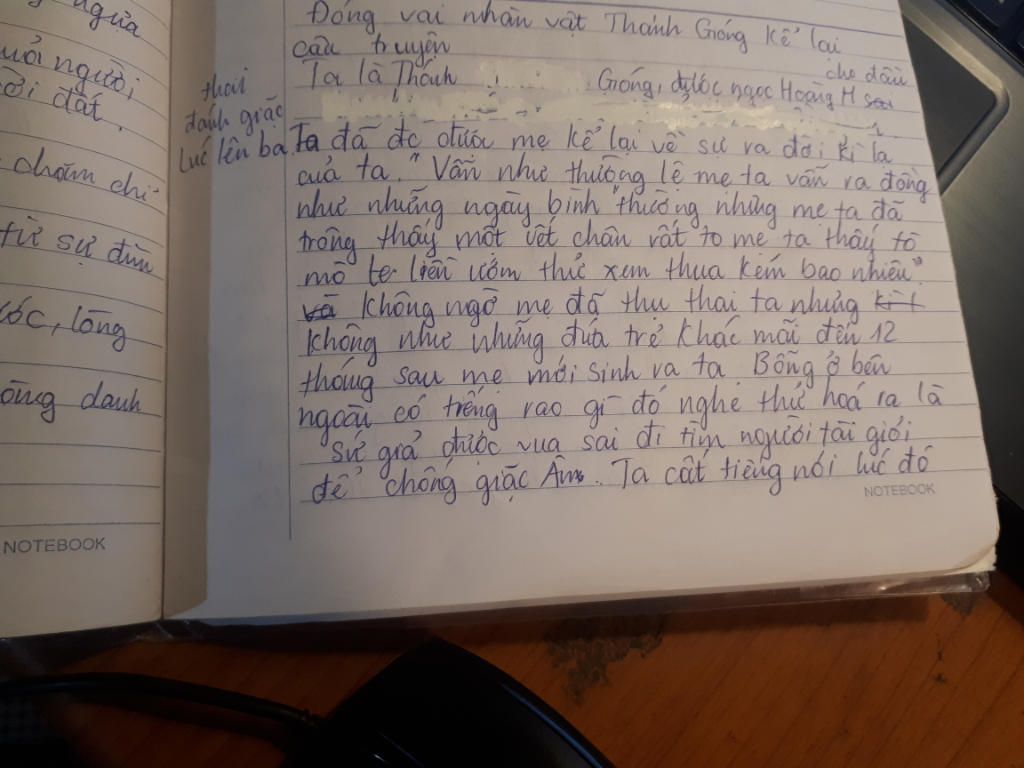 ngựa
người
đất.
chăm chỉ
từ sự
lòng
danh
NOTEBOOK
Đóng vai nhân vật Thánh Gióng kể lại
câu truyện
Ta là Thánh Gióng, ngọc Hoàng
cho đầu
thai
đánh giặc
lúc lên ba
Ta đã đc được mẹ kể lại về sự ra đời kì lạ
của ta. "Vẫn như thường lệ mẹ ta vẫn ra đồng
như những ngày bình thường nhưng mẹ ta đã
trông thấy một vết chân rất to mẹ ta thấy tò
mò liền ướm thử xem thua kém bao nhiêu"
không ngờ mẹ đã thu thai ta nhưng
không như những đứa trẻ khác mãi đến 12
tháng sau mẹ mới sinh ra ta Bỗng ở bên
ngoài có tiếng rao gì đó nghe thử hoá ra là
Sứ giả được vua sai đi tìm người tài giỏi
để chống giặc Ân. Ta cất tiếng nói lúc đó
NOTEBOOK